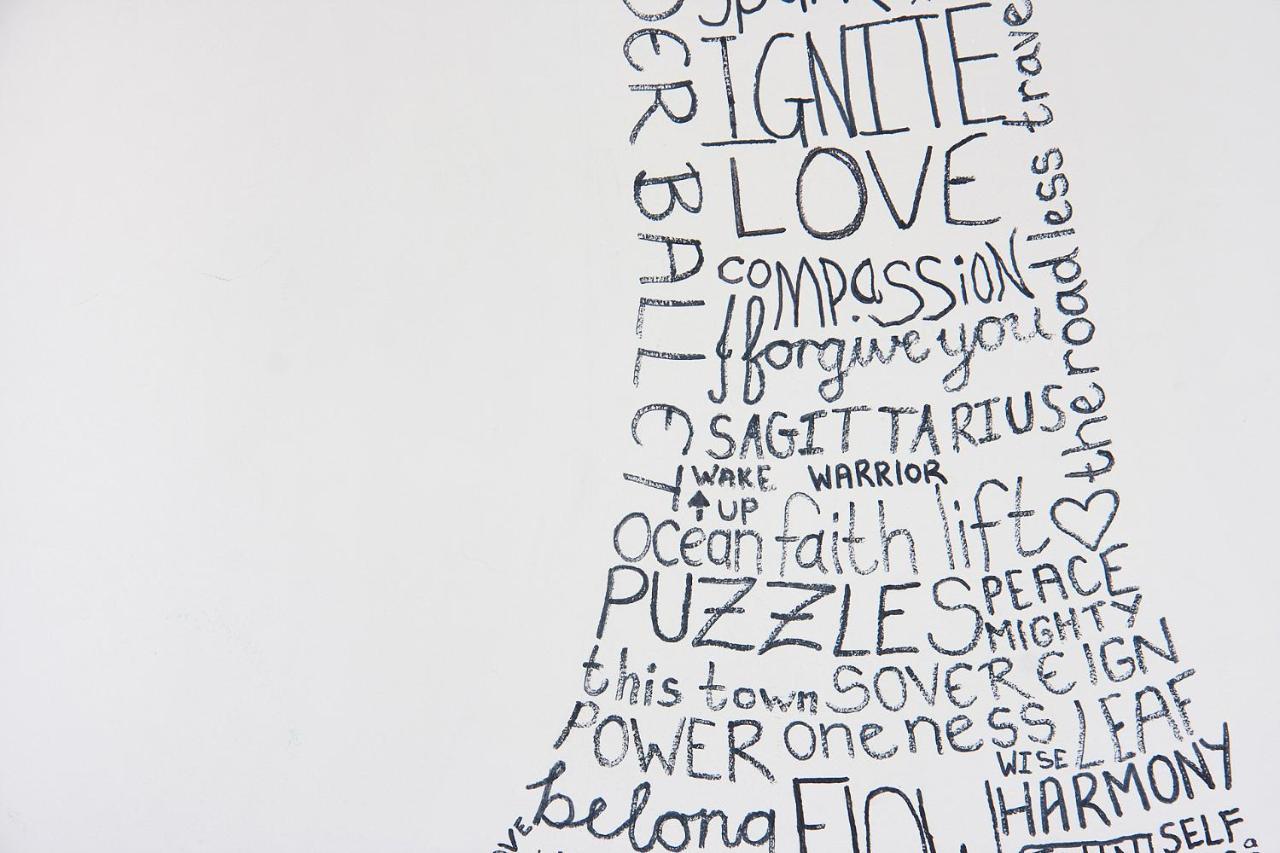 IGNITE
LOVE
COMPASSION
I forgive you
SAGITTARIUS
WAKE UP WARRIOR
ocean faith lift
PUZZLES PEACE
MIGHTY
this town SOVEREIGN
POWER oneness LEAF
WISE
belong HARMONY
SELF
BALLET
the road less